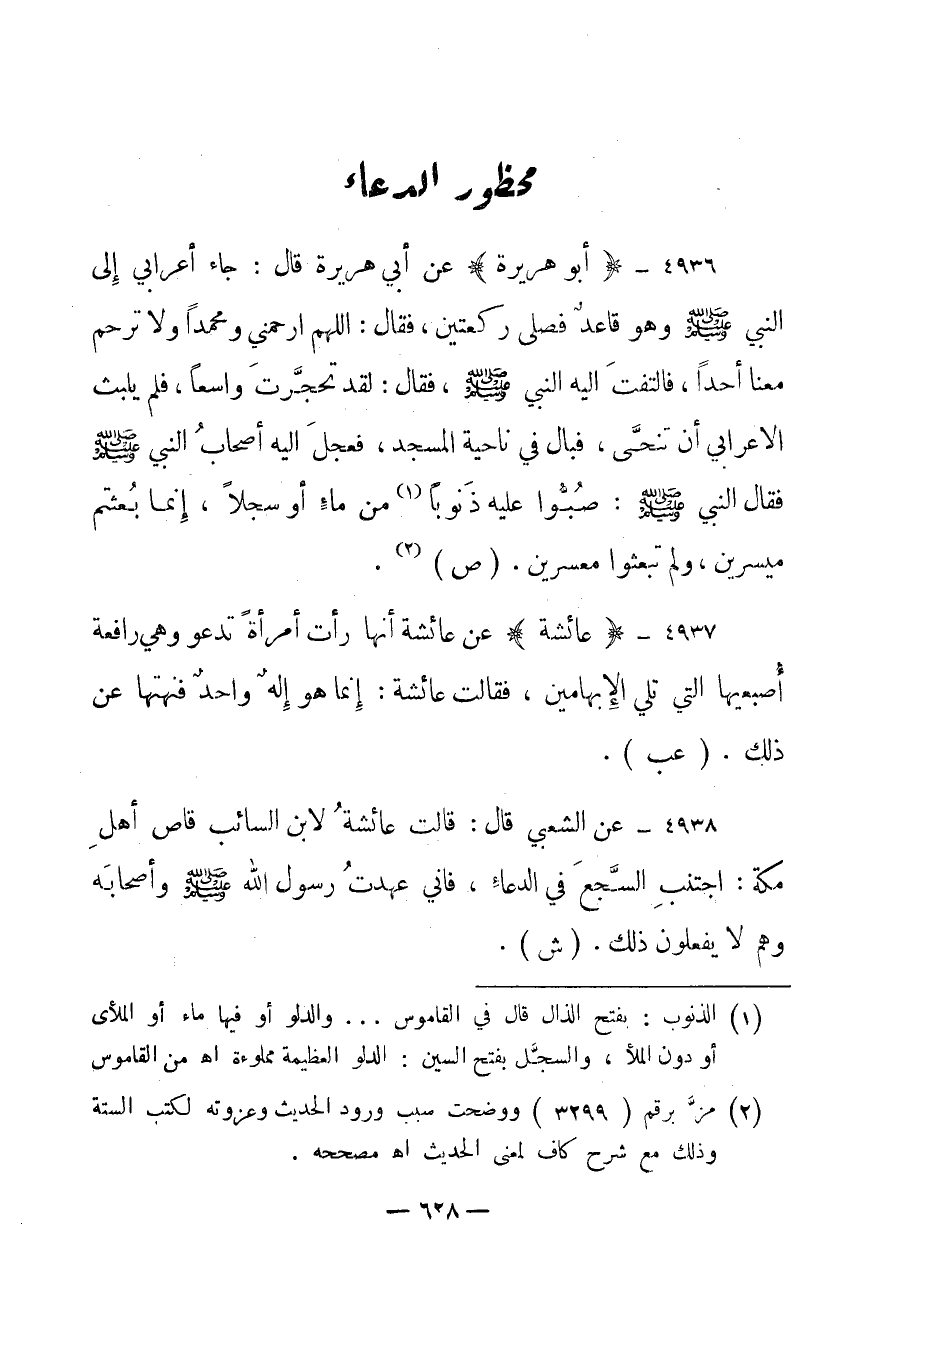 محظور الدعاء
٤٩٣٦ ـ ﴿ أبو هريرة ﴾ عن أبي هريرة قال : جاء أعرابي إلى
النبي ﷺ وهو قاعدٌ فصلى ركعتين ، فقال : اللهم ارحمني ومحمداً ولا ترحم
معنا أحداً ، فالتفتَ اليه النبي ﷺ ، فقال : لقد تحجَّرتَ واسعاً ، فلم يلبث
الاعرابي أن تنحَّى ، فبال في ناحية المسجد ، فعجلَ اليه أصحابُ النبي ﷺ
فقال النبي ﷺ : صُبُّوا عليه ذَنوباً (١) من ماءٍ أو سجلاً ، إنما بُعثتم
ميسرين ، ولم تبعثوا معسرين . ( ص ) (٢) .
٤٩٣٧ ـ ﴿ عائشة ﴾ عن عائشة أنها رأت أمرأةً تدعو وهي رافعة
أُصبعيها التي تلي الإِبهامين ، فقالت عائشة : إنما هو إلهٌ واحدٌ فنهتها عن
ذلك . ( عب ) .
٤٩٣٨ ـ عن الشعبي قال : قالت عائشةُ لابن السائب قاص أهلِ
مكة : اجتنبِ السَّجعَ في الدعاء ، فاني عهدتُ رسول الله ﷺ وأصحابَه
وهم لا يفعلون ذلك . ( ش ) .
(١) الذنوب : بفتح الذال قال في القاموس ... والدلو أو فيها ماء أو الملأى
أو دون الملأ ، والسجَّل بفتح السين : الدلو العظيمة مملوءة اه من القاموس
(٢) مرَّ برقم ( ٣٢٩٩ ) ووضحت سبب ورود الحديث وعزوته لكتب الستة
وذلك مع شرح كاف لمعنى الحديث اه مصححه .
— ٦٢٨ —